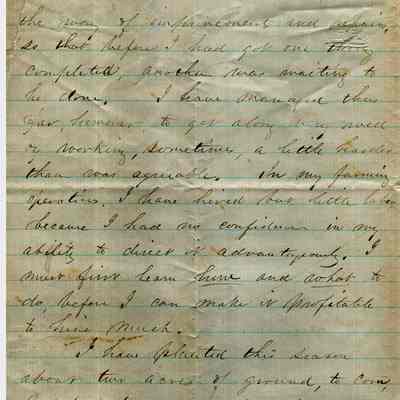 the way of improvement and repairing,
so that before I had got one thing
completed, another was waiting to
be done. I have managed thus
far, however to get along very well
or working, sometimes, a little harder
than was agreeable. In my farming
operations I have hired but little labor
because I had no confidence in my
ability to direct it advantageously. I
must first learn how and what to
do, before I can make it profitable
to hire much.
I have planted this season
about two acres of ground, to corn,